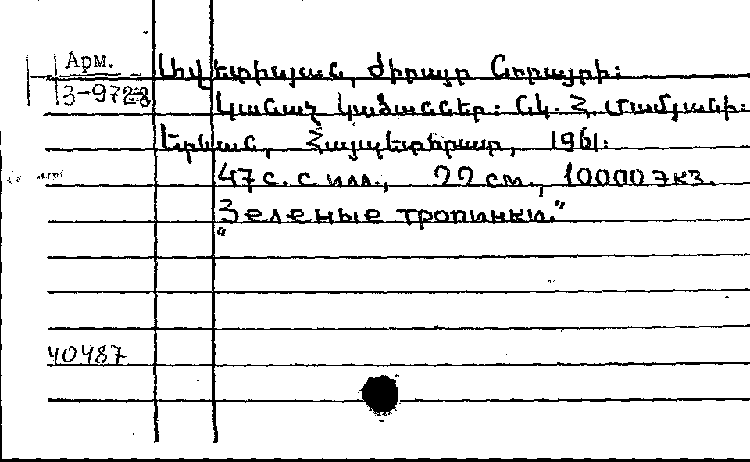 Арм.
3-9723
Ավետիսյան, Ժիրայր Նորայրի:
Կանաչ կածաններ: Նկ. Հ. Մամյանի:
Երևան, Հայպետհրատ, 1961.
47 с. с илл., 22 см., 10000 экз.
"Зеленые тропинки."
40487